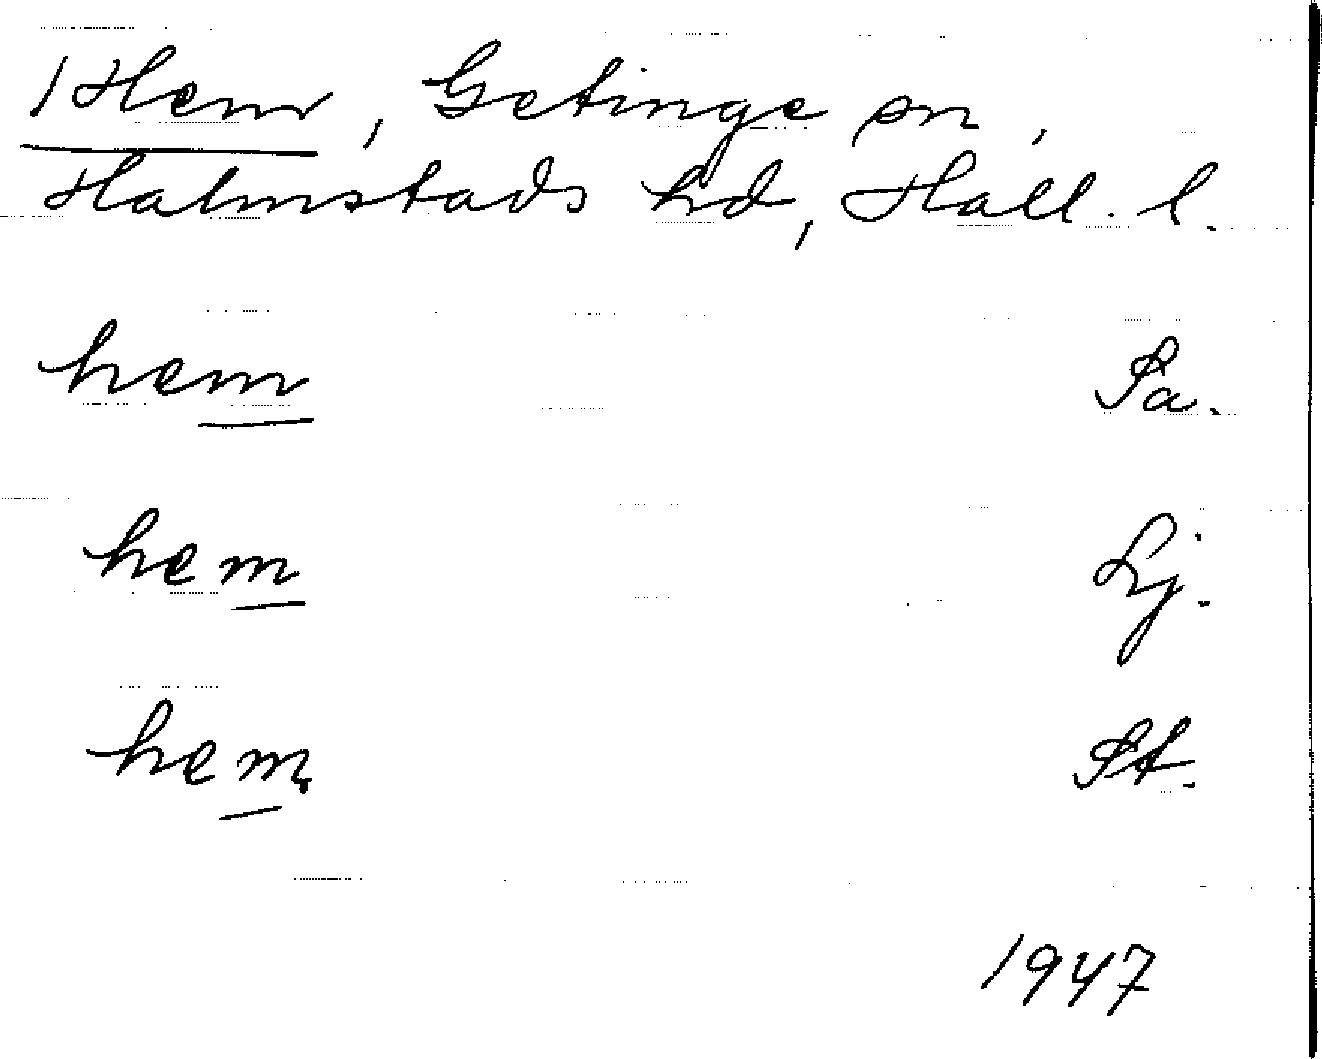 /Hem, Getinge sn,
Halmstads hd, Hall. l.
hem Sa.
hem Lj.
hem St.
1947